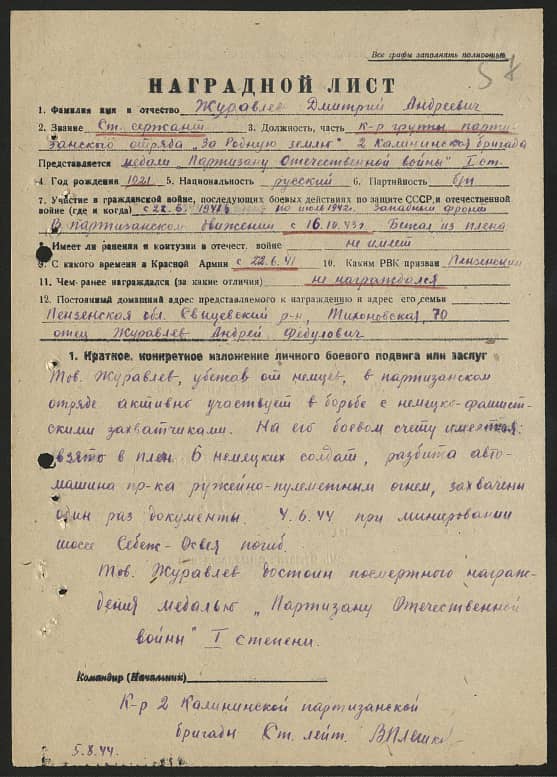 Все графы заполнять полностью
57
НАГРАДНОЙ ЛИСТ
1. Фамилия имя и отчество Журавлев Дмитрий Андреевич
2. Звание Ст. сержант 3. Должность, часть к-р группы парти-
занского отряда „За Родную землю" 2 Калининская бригада
Представляется медали „Партизану Отечественной войны" I ст.
4. Год рождения 1921 5. Национальность русский 6. Партийность б/п
7. Участие в гражданской войне, последующих боевых действиях по защите СССР и отечественной
войне (где и когда) с 22.6.1941г по июль 1942. Западный фронт
В партизанском движении с 16.10.43г. Бежал из плена
8. Имеет ли ранения и контузии в отечест. войне не имеет
9. С какого времени в Красной Армии с 22.6.41 10. Каким РВК призван Пензенский
11. Чем ранее награждался (за какие отличия) не награждался
12. Постоянный домашний адрес представляемого к награждению и адрес его семьи
Пензенская обл. Свищевский р-н, Тихоновская, 70
отец Журавлев Андрей Федулович
1. Краткое, конкретное изложение личного боевого подвига или заслуг
Тов. Журавлев, убежав от немцев, в партизанском
отряде активно участвует в борьбе с немецко-фашист-
скими захватчиками. На его боевом счету имеется:
взято в плен 6 немецких солдат, разбита авто-
машина пр-ка ружейно-пулеметным огнем, захвачены
один раз документы. 4.6.44 при минировании
шоссе Себеж-Освея погиб.
Тов. Журавлев достоин посмертного награж-
дения медалью „Партизану Отечественной
войны" I степени.
Командир (Начальник)
К-р 2 Калининской партизанской
бригады Ст. лейт.
5.8.44.